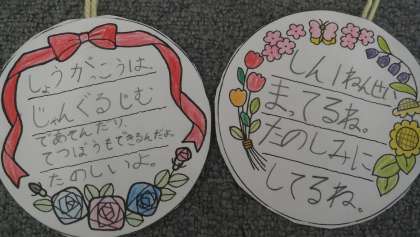 しょうがっこうは、
じゃんぐるじむ
であそんだり、
てつぼうもできるんだよ。
たのしいよ。
しん1ねんせい
まってるね。
たのしみに
してるね。